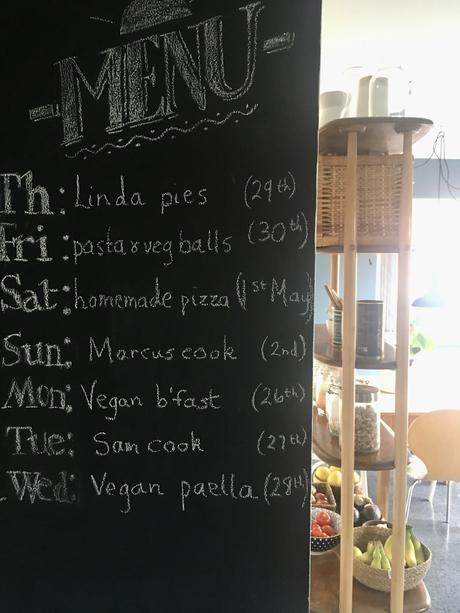 -MENU-
Th: Linda pies (29th)
Fri: pasta & veg balls (30th)
Sat: homemade pizza (1st May)
Sun: Marcus cook (2nd)
Mon: Vegan b'fast (26th)
Tue: Sam cook (27th)
Wed: Vegan paella (28th)